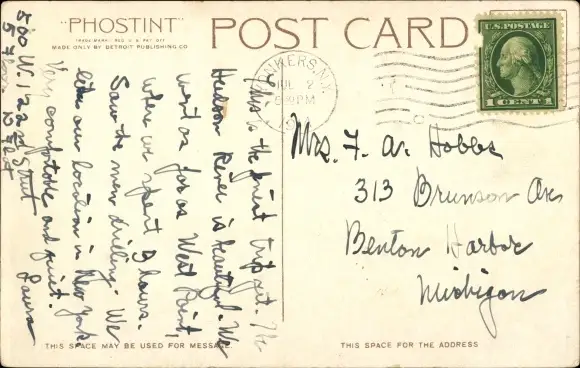 "PHOSTINT"
TRADE MARK REG. U.S. PAT. OFF.
MADE ONLY BY DETROIT PUBLISHING CO.
POST CARD
U.S. POSTAGE
1 CENT 1
YONKERS, N.Y.
JUL 2
PM
This is the finest trip yet. The
Hudson River is beautiful. We
went as far as West Point,
where we spent 2 hours.
Saw the men drilling. We
like our location in New York
Very comfortable and quiet.
Laura
500 W. 122nd Street
5 floor
Mrs. F. A. Hobbs
313 Brunson Av.
Benton Harbor
Michigan
THIS SPACE MAY BE USED FOR MESSAGE.
THIS SPACE FOR THE ADDRESS